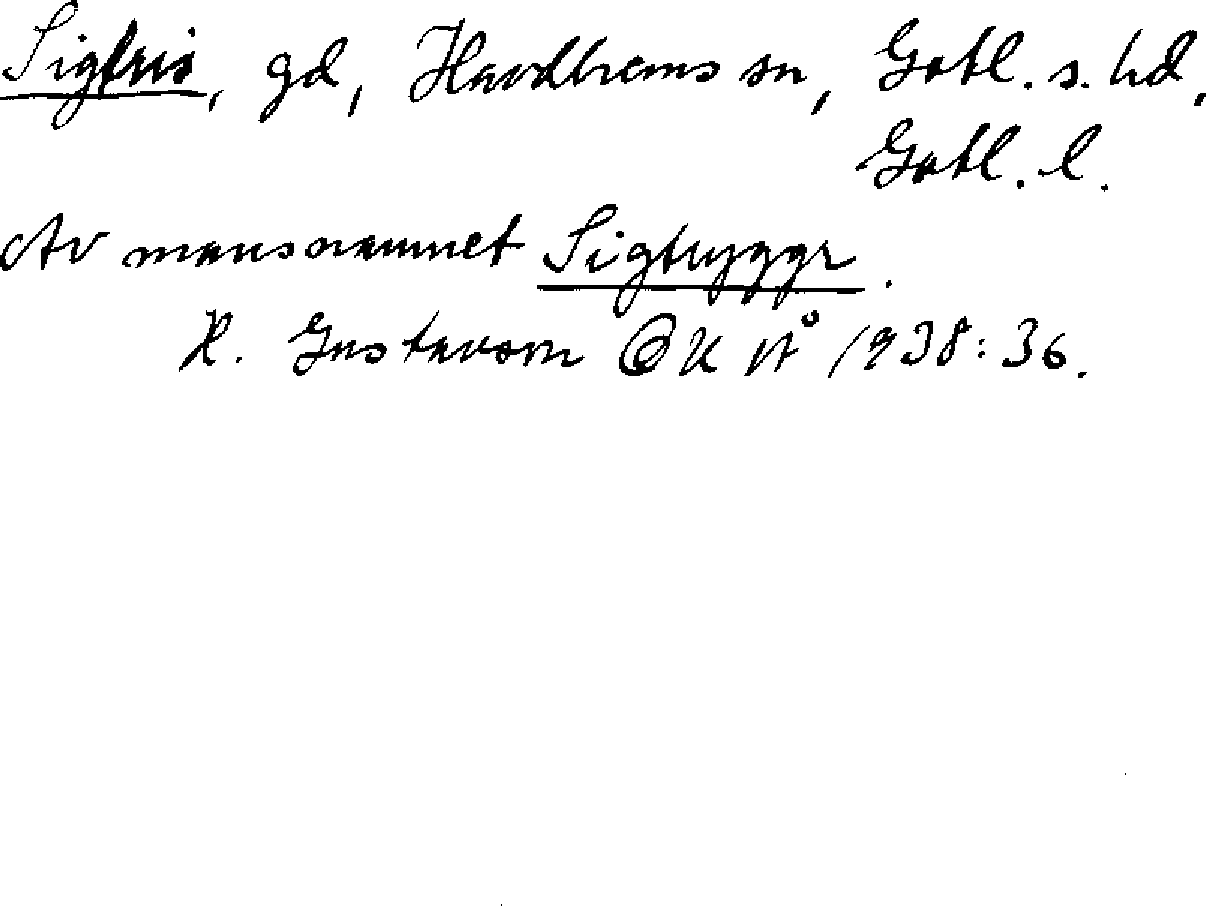 Sigtris, gd, Havdhems sn, Gotl. s. hd,
Gotl. l.
Av mansnamnet Sigtryggr.
H. Gustavson 1938:36.